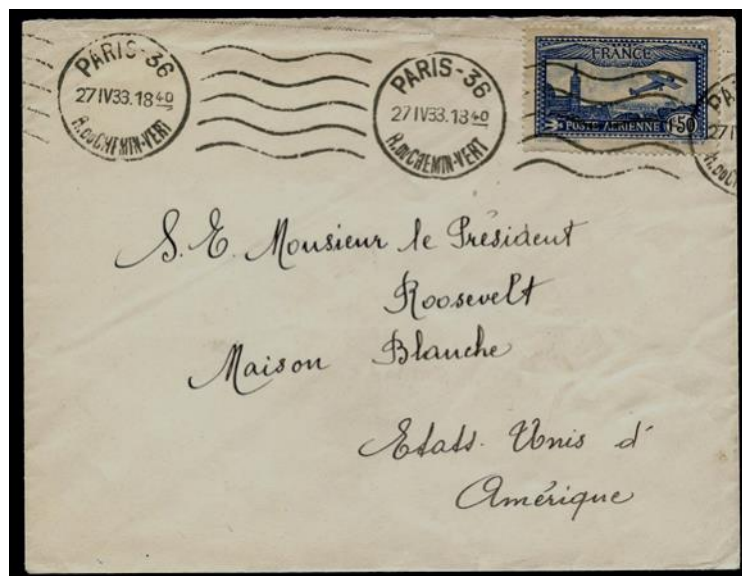 PARIS-36
27 IV 33.18 40
R. DU CHEMIN-VERT
PARIS-36
27 IV 33.18 40
R. DU CHEMIN-VERT
FRANCE
POSTE AÉRIENNE 1f50
PA
27 I
R. DU C
S. E. Monsieur le Président
Roosevelt
Maison Blanche
Etats. Unis d'
Amérique